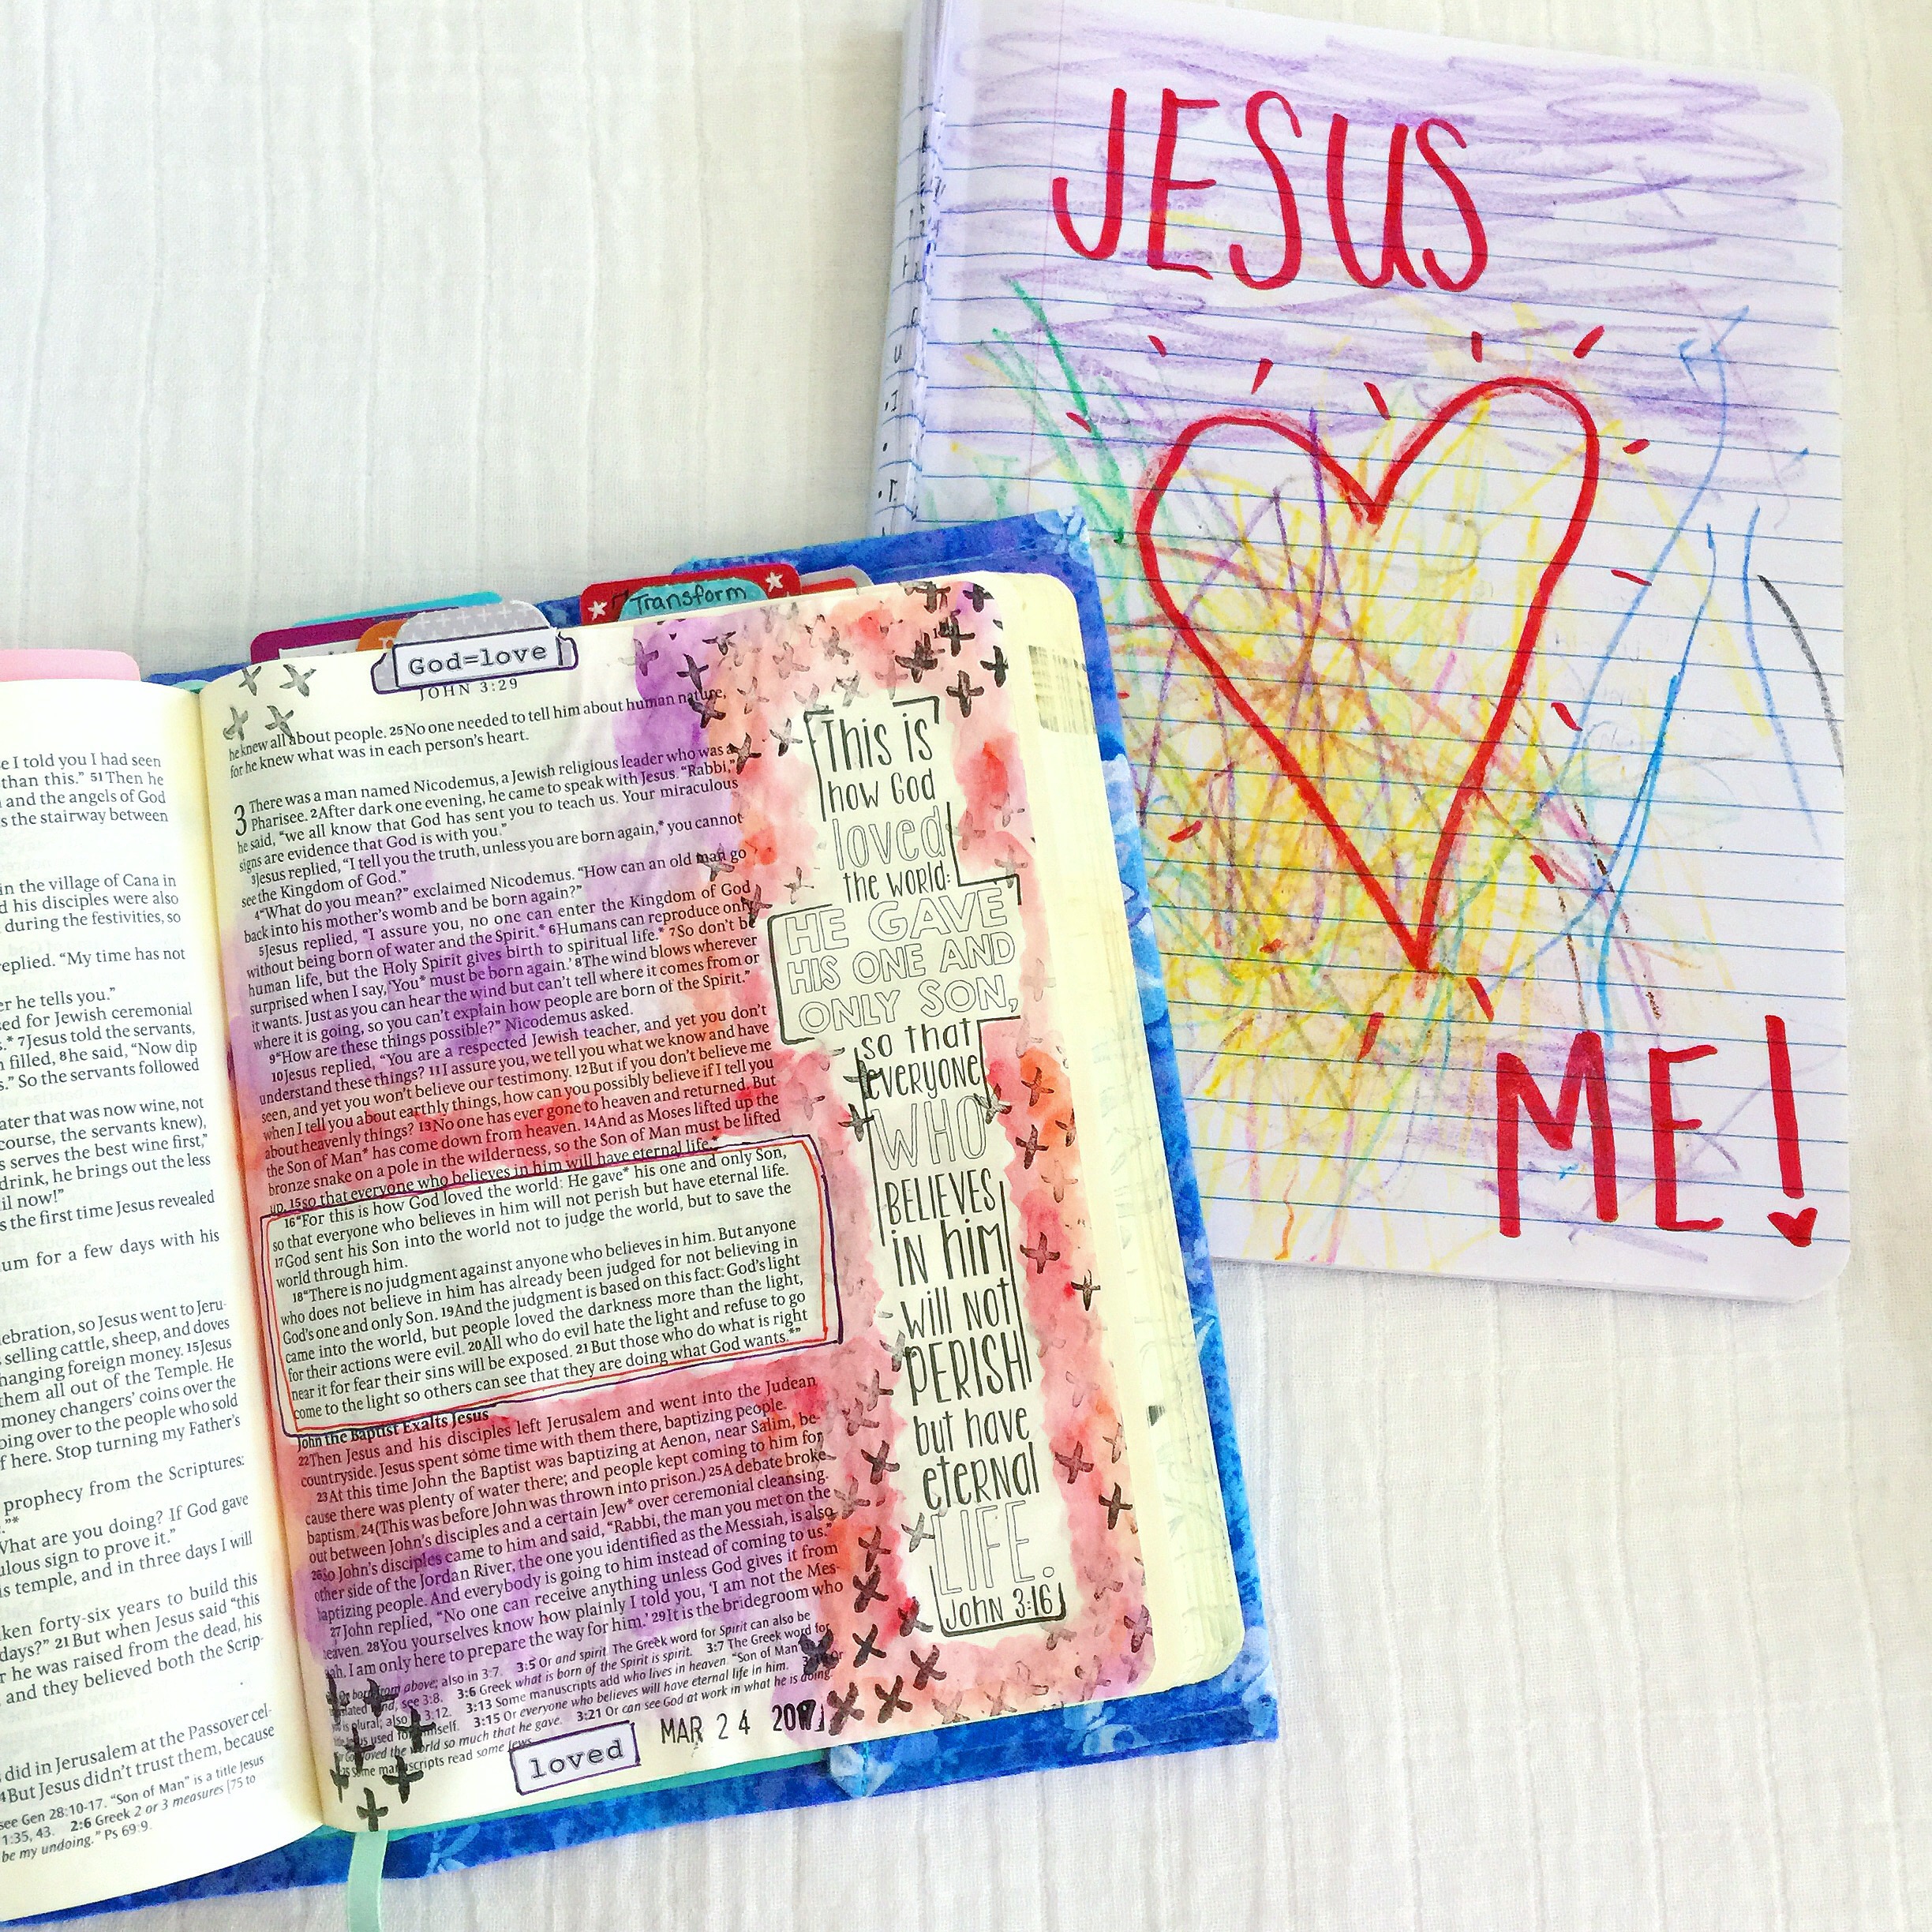 JESUS
ME!
Transform
God=love
JOHN 3:29
he knew all about people. 25No one needed to tell him about human nature,
for he knew what was in each person's heart.
3 There was a man named Nicodemus, a Jewish religious leader who was a
Pharisee. 2After dark one evening, he came to speak with Jesus. “Rabbi,”
he said, “we all know that God has sent you to teach us. Your miraculous
signs are evidence that God is with you.”
3Jesus replied, “I tell you the truth, unless you are born again,* you cannot
see the Kingdom of God.”
4“What do you mean?” exclaimed Nicodemus. “How can an old man go
back into his mother's womb and be born again?”
5Jesus replied, “I assure you, no one can enter the Kingdom of God
without being born of water and the Spirit.* 6Humans can reproduce only
human life, but the Holy Spirit gives birth to spiritual life.* 7So don't be
surprised when I say, ‘You* must be born again.’ 8The wind blows wherever
it wants. Just as you can hear the wind but can't tell where it comes from or
where it is going, so you can't explain how people are born of the Spirit.”
9“How are these things possible?” Nicodemus asked.
10Jesus replied, “You are a respected Jewish teacher, and yet you don't
understand these things? 11I assure you, we tell you what we know and have
seen, and yet you won't believe our testimony. 12But if you don't believe me
when I tell you about earthly things, how can you possibly believe if I tell you
about heavenly things? 13No one has ever gone to heaven and returned. But
the Son of Man* has come down from heaven. 14And as Moses lifted up the
bronze snake on a pole in the wilderness, so the Son of Man must be lifted
up, 15so that everyone who believes in him will have eternal life.*
16“For this is how God loved the world: He gave* his one and only Son,
so that everyone who believes in him will not perish but have eternal life.
17God sent his Son into the world not to judge the world, but to save the
world through him.
18“There is no judgment against anyone who believes in him. But anyone
who does not believe in him has already been judged for not believing in
God's one and only Son. 19And the judgment is based on this fact: God's light
came into the world, but people loved the darkness more than the light,
for their actions were evil. 20All who do evil hate the light and refuse to go
near it for fear their sins will be exposed. 21But those who do what is right
come to the light so others can see that they are doing what God wants.*”
John the Baptist Exalts Jesus
22Then Jesus and his disciples left Jerusalem and went into the Judean
countryside. Jesus spent some time with them there, baptizing people.
23At this time John the Baptist was baptizing at Aenon, near Salim, be-
cause there was plenty of water there; and people kept coming to him for
baptism. 24(This was before John was thrown into prison.) 25A debate broke
out between John's disciples and a certain Jew* over ceremonial cleansing.
26So John's disciples came to him and said, “Rabbi, the man you met on the
other side of the Jordan River, the one you identified as the Messiah, is also
baptizing people. And everybody is going to him instead of coming to us.”
27John replied, “No one can receive anything unless God gives it from
heaven. 28You yourselves know how plainly I told you, ‘I am not the Mes-
ah. I am only here to prepare the way for him.’ 29It is the bridegroom who
from above; also in 3:7. 3:5 Or and spirit. The Greek word for Spirit can also be
see 3:8. 3:6 Greek what is born of the Spirit is spirit. 3:7 The Greek word for
is plural; also 3:12. 3:13 Some manuscripts add who lives in heaven. “Son of Man”
used for himself. 3:15 Or everyone who believes will have eternal life in him.
loved the world so much that he gave. 3:21 Or can see God at work in what he is doing.
Some manuscripts read some Jews.
loved
MAR 24 2017
This is
how God
loved
the world:
HE GAVE
HIS ONE AND
ONLY SON,
so that
everyone
WHO
BELIEVES
IN him
will not
PERISH
but have
eternal
LIFE.
John 3:16
e I told you I had seen
than this.” 51Then he
and the angels of God
s the stairway between
in the village of Cana in
d his disciples were also
during the festivities, so
replied. “My time has not
er he tells you.”
sed for Jewish ceremonial
.* 7Jesus told the servants,
n filled, 8he said, “Now dip
s.” So the servants followed
ater that was now wine, not
course, the servants knew),
s serves the best wine first,”
drink, he brings out the less
il now!”
s the first time Jesus revealed
um for a few days with his
lebration, so Jesus went to Jeru-
selling cattle, sheep, and doves
hanging foreign money. 15Jesus
them all out of the Temple. He
money changers' coins over the
oing over to the people who sold
f here. Stop turning my Father's
prophecy from the Scriptures:
”*
What are you doing? If God gave
ulous sign to prove it.”
is temple, and in three days I will
ken forty-six years to build this
days?” 21But when Jesus said “this
r he was raised from the dead, his
and they believed both the Scrip-
did in Jerusalem at the Passover cel-
4But Jesus didn't trust them, because
see Gen 28:10-17. “Son of Man” is a title Jesus
1:35, 43. 2:6 Greek 2 or 3 measures [75 to
be my undoing.” Ps 69:9.